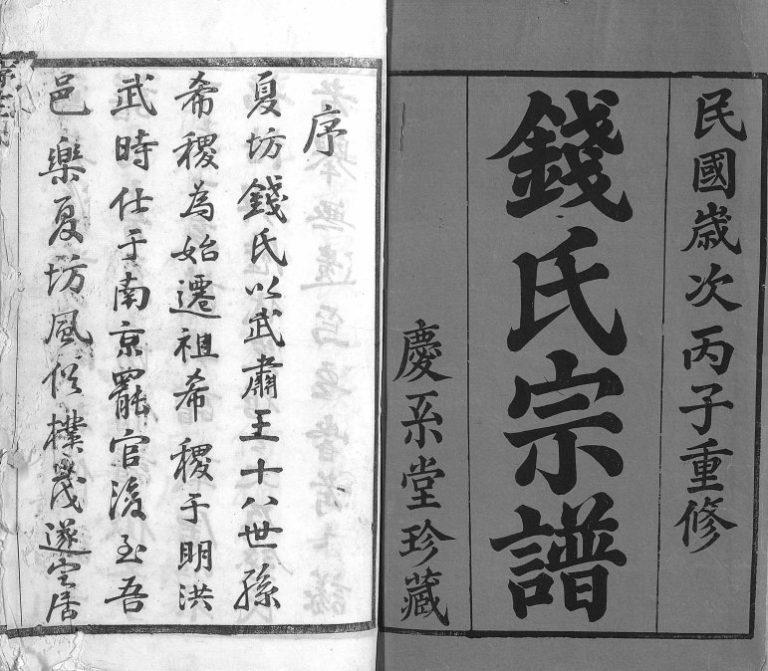 民國歲次丙子重修
錢氏宗譜
慶系堂珍藏
序
夏坊錢氏以武肅王十八世孫
希稷為始遷祖希稷于明洪
武時仕于南京罷官後至吾
邑樂夏坊風俗樸茂遂定居